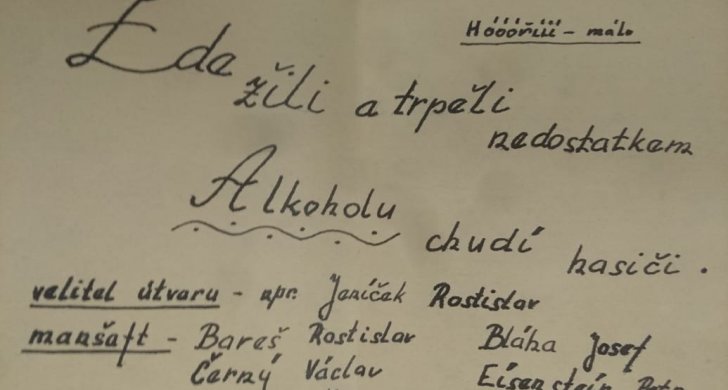 Hóóóříií - málo
Zde
žili a trpěli
nedostatkem
Alkoholu
chudí hasiči.
velitel útvaru - npr. Jeníček Rostislav
manšaft - Bareš Rostislav Bláha Josef
Černý Václav Eisenstein Petr